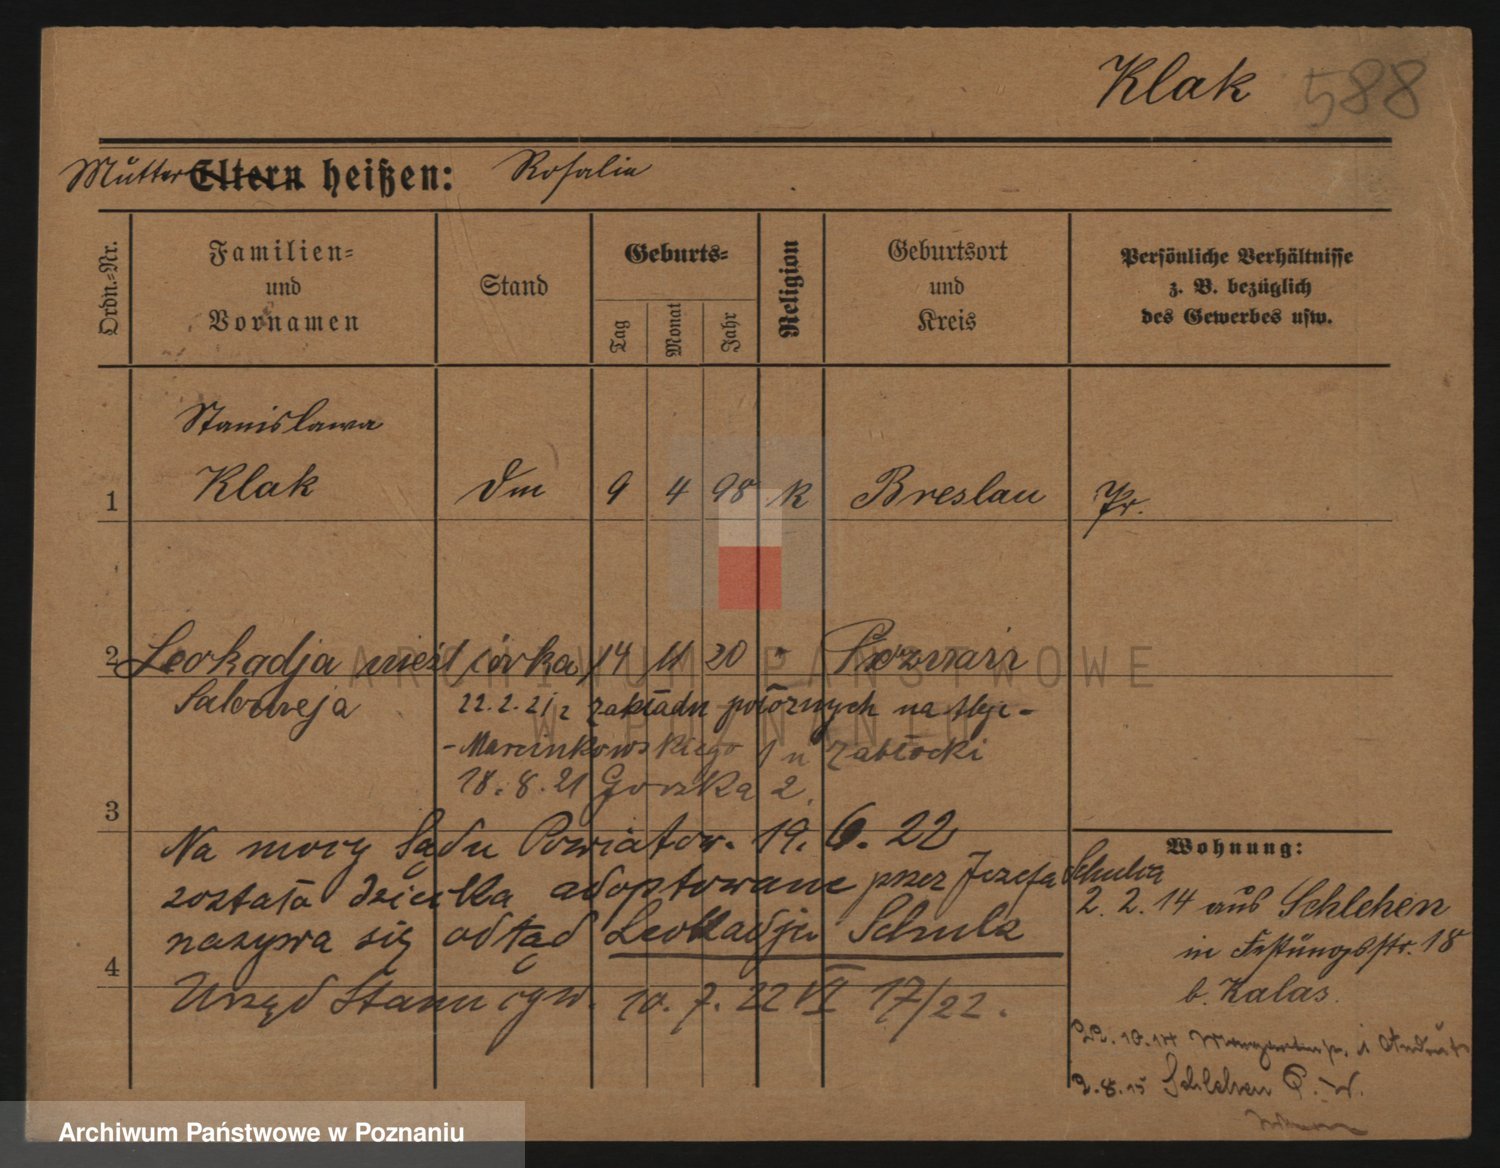 Klak 588
Mutter Eltern heißen: Rosalie
Ordn.-Nr.
Familien=
und
Vornamen
Stand
Geburts=
Tag
Monat
Jahr
Religion
Geburtsort
und
Kreis
Persönliche Verhältnisse
z. B. bezüglich
des Gewerbes usw.
Stanislawa
1 Klak Dm 9 4 98 k Breslau Pr.
2 Leokadja nieśl córka 14 11 20 " Poznań
Salomeja 22.2.21 z zakładu położnych na Alje-
-Marcinkowskiego u Zabłocki
18.8.21 Gorska 2.
3
Na mocy Sądu Powiatow. 19. 6. 22
została dziecko adoptowane przez Jozefa Schulza
nazywa się odtąd Leokadja Schulz
4
Urząd Stanu cyw. 10. 7. 22 VI 17/22.
Wohnung:
2. 2. 14 aus Schlehen
in Festungsstr. 18
b. Kalas.
22. 10. 14
2. 8. 15 Schlehen P. W.
ARCHIWUM PAŃSTWOWE
W POZNANIU
Archiwum Państwowe w Poznaniu